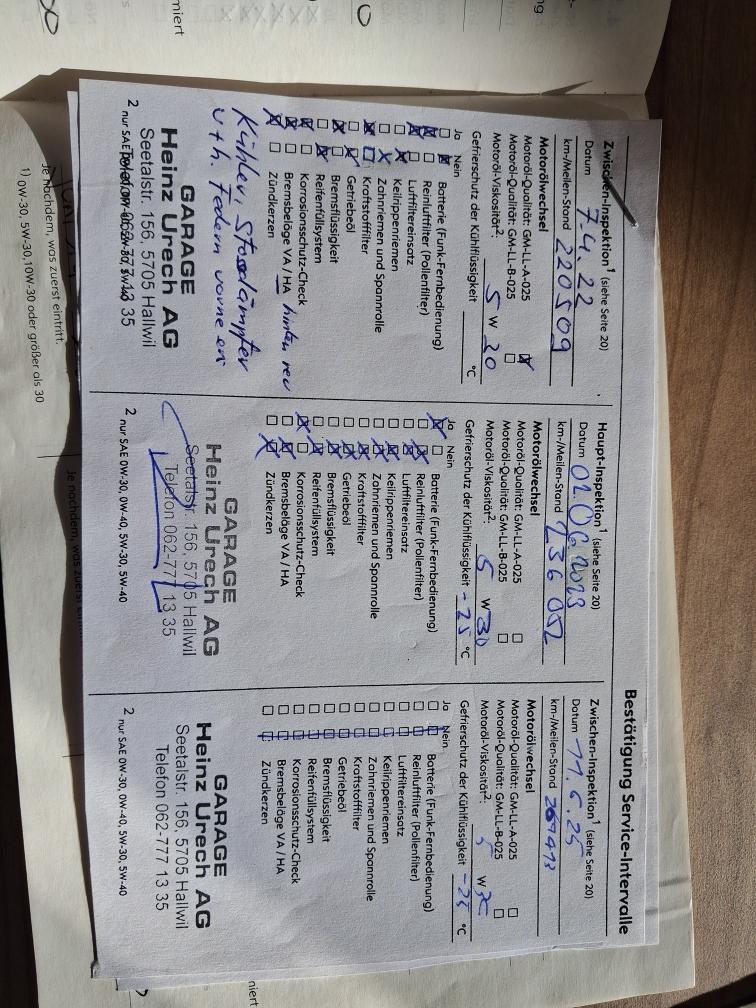 Bestätigung Service-Intervalle
Zwischen-Inspektion¹ (siehe Seite 20)
Datum 7.4.22
km-/Meilen-Stand 220509
Motorölwechsel
Motoröl-Qualität: GM-LL-A-025
Motoröl-Qualität: GM-LL-B-025
Motoröl-Viskosität². 5 W 20
Gefrierschutz der Kühlflüssigkeit °C
Ja Nein
Batterie (Funk-Fernbedienung)
Reinluftfilter (Pollenfilter)
Luftfiltereinsatz
Keilrippenriemen
Zahnriemen und Spannrolle
Kraftstofffilter
Getriebeöl
Bremsflüssigkeit
Reifenfüllsystem
Korrosionsschutz-Check
Bremsbeläge VA / HA hinten neu
Zündkerzen
Kühler, Stossdämpfer
v+h. Federn vorne er
GARAGE
Heinz Urech AG
Seetalstr. 156, 5705 Hallwil
Telefon 062-777 13 35
2 nur SAE
Haupt-Inspektion¹ (siehe Seite 20)
Datum 01.06.2023
km-/Meilen-Stand 236 052
Motorölwechsel
Motoröl-Qualität: GM-LL-A-025
Motoröl-Qualität: GM-LL-B-025
Motoröl-Viskosität². 5 W 30
Gefrierschutz der Kühlflüssigkeit -25 °C
Ja Nein
Batterie (Funk-Fernbedienung)
Reinluftfilter (Pollenfilter)
Luftfiltereinsatz
Keilrippenriemen
Zahnriemen und Spannrolle
Kraftstofffilter
Getriebeöl
Bremsflüssigkeit
Reifenfüllsystem
Korrosionsschutz-Check
Bremsbeläge VA / HA
Zündkerzen
GARAGE
Heinz Urech AG
Seetalstr. 156, 5705 Hallwil
Telefon 062-777 13 35
2 nur SAE 0W-30, 0W-40, 5W-30, 5W-40
Zwischen-Inspektion¹ (siehe Seite 20)
Datum 11.6.25
km-/Meilen-Stand
Motorölwechsel
Motoröl-Qualität: GM-LL-A-025
Motoröl-Qualität: GM-LL-B-025
Motoröl-Viskosität². 5 W
Gefrierschutz der Kühlflüssigkeit -25 °C
Ja Nein
Batterie (Funk-Fernbedienung)
Reinluftfilter (Pollenfilter)
Luftfiltereinsatz
Keilrippenriemen
Zahnriemen und Spannrolle
Kraftstofffilter
Getriebeöl
Bremsflüssigkeit
Reifenfüllsystem
Korrosionsschutz-Check
Bremsbeläge VA / HA
Zündkerzen
GARAGE
Heinz Urech AG
Seetalstr. 156, 5705 Hallwil
Telefon 062-777 13 35
2 nur SAE 0W-30, 0W-40, 5W-30, 5W-40
Je nachdem, was zuerst eintritt.
1) 0W-30, 5W-30,10W-30 oder größer als 30
Je nachdem, was zuerst